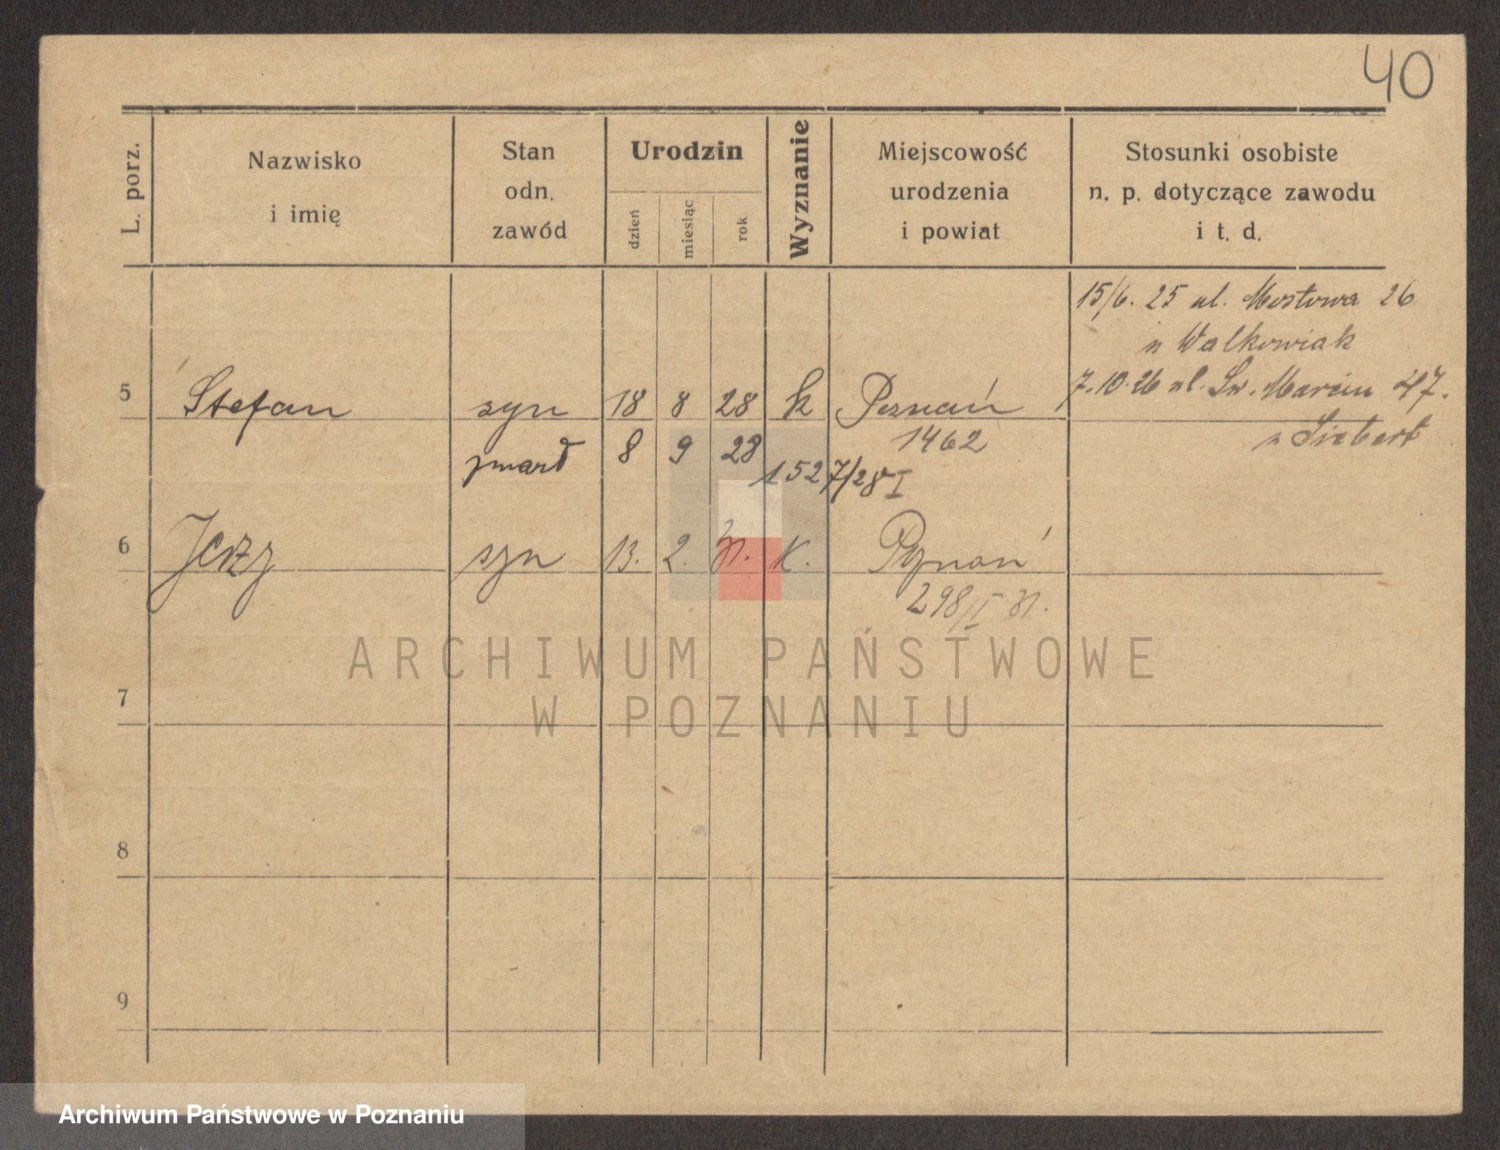 40
L. porz.
Nazwisko
i imię
Stan
odn.
zawód
Urodzin
dzień
miesiąc
rok
Wyznanie
Miejscowość
urodzenia
i powiat
Stosunki osobiste
n. p. dotyczące zawodu
i t. d.
15/6. 25 ul. Mostowa 26
u Walkowiak
7.10.26 ul. Św. Marcin 47.
u Siebert
5 Stefan syn 18 8 28 k Poznań
1462
zmarł 8 9 28 1527/28 I
6 Jerzy syn 13. 2. 31. k. Poznań
298/I 31.
7
8
9
ARCHIWUM PAŃSTWOWE
W POZNANIU
Archiwum Państwowe w Poznaniu